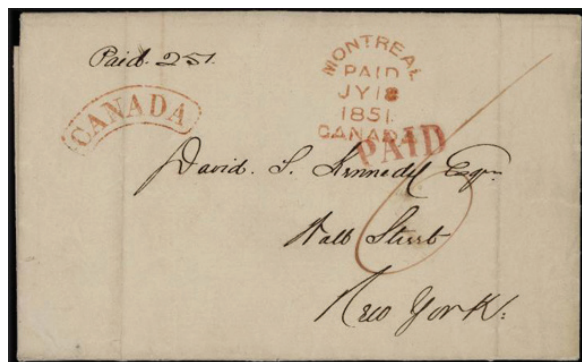 Paid. 251.
MONTREAL
PAID
JY 18
1851
CANADA
CANADA
PAID
David. S. Kennedy Esqr.
Wall Street
New York.
6